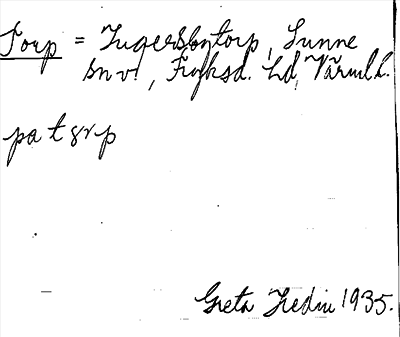 Torp = Ingersbyntorp, Sunne
sn v., Fryksd. hd, Värml.l.
på tɔrp
Greta Hedin 1935.